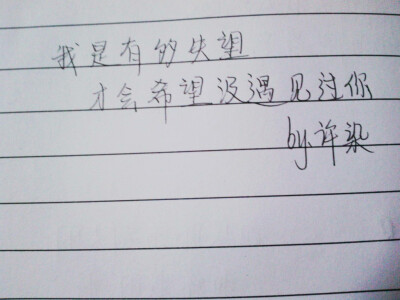 我是有的失望
才会希望没遇见过你
by许染